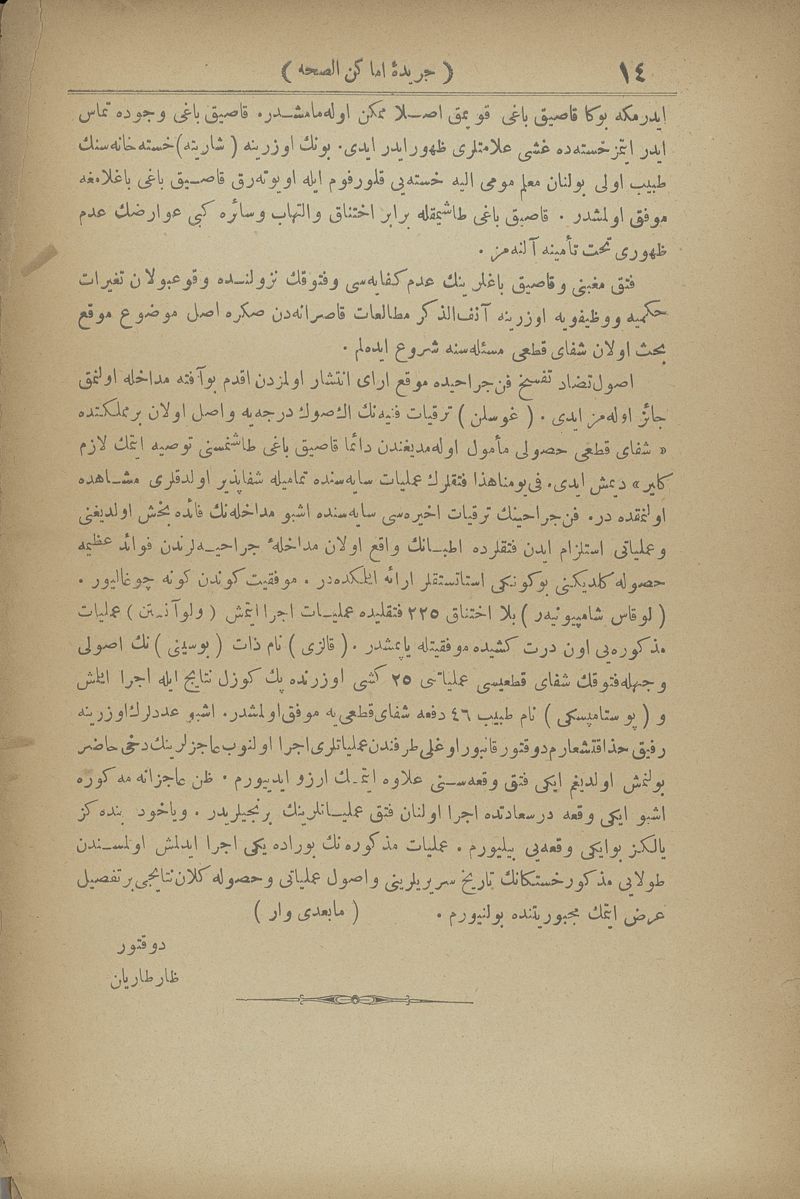 ١٤
( جريدۀ اماكن الصحه )
ايدرمكه بوكا قاصيق باغى قويمق اصلا ممكن اوله‌مامشدر. قاصيق باغى وجوده تماس
ايدر ايتمز خسته‌ده غشى علامتلرى ظهور ايدر ايدى. بونك اوزرينه ( شاريته ) خسته خانه‌سنك
طبيب اولى بولنان معلم مومى اليه خسته‌يى قلورفوم ايله اويوته‌رق قاصيق باغى باغلامغه
موفق اولمشدر . قاصيق باغى طاشيمقله برابر اختناق والتهاب وسائره كبى عوارضك عدم
ظهورى تحت تأمينه آلنه‌مز .
فتق مغبنى وقاصيق باغلرينك عدم كفايه‌سى وفتوقك نزولنده وقوعبولان تغيرات
حكميه ووظيفويه اوزرينه آنف‌الذكر مطالعات قاصرانه‌دن صكره اصل موضوع موقع
بحث اولان شفاى قطعى مسئله‌سنه شروع ايده‌لم .
اصول تضاد تفسخ فن جراحيده موقع اراى انتشار اولمزدن اقدم بوآفته مداخله اولنمق
جائز اوله‌مز ايدى . ( غوسلن ) ترقيات فنيه‌نك اك‌صوك درجه‌يه واصل اولان بر مملكتده
« شفاى قطعى حصولى مأمول اوله‌مديغندن دائما قاصيق باغى طاشنمسنى توصيه ايتمك لازم
كلير » ديمش ايدى. فى‌يومناهذا فتقلرك عمليات سايه‌سنده تماميله شفاپذير اولدقلرى مشاهده
اولنمقده در. فن جراحينك ترقيات اخيره‌سى سايه‌سنده اشبو مداخله‌نك فائده بخش اولديغنى
وعملياتى استلزام ايدن فتقلرده اطبانك واقع اولان مداخلۀ جراحيه‌لرندن فوائد عظيمه
حصوله كلديكنى بوكونكى استاتستقلر ارائه ايلمكده‌در . موفقيت كوندن كونه چوغاليور .
( لوقاس شامپيونيه‌ر ) بلا اختناق ٢٢٥ فتقليده عمليات اجرا ايتمش ( ولوآنتن ) عمليات
مذكوره‌يى اون درت كشيده موفقيتله ياپمشدر .( قالزى ) نام ذات ( بوسينى ) نك اصولى
وجهله فتوقك شفاى قطعيسى عملياتى ٢٥ كشى اوزرنده پك كوزل نتايج ايله اجرا ايلمش
و ( پوستامپسكى ) نام طبيب ٤٦ دفعه شفاى قطعى‌يه موفق اولمشدر. اشبو عددلرك اوزرينه
رفيق حذاقتشعارم دوقتور قانبور اوغلى طرفندن عملياتلرى اجرا اولنوب عاجزلرينك دخى حاضر
بولنمش اولديغم ايكى فتق وقعه‌سنى علاوه ايتمك ارزو ايدييورم . ظن عاجزانه مه كوره
اشبو ايكى وقعه درسعادتده اجرا اولنان فتق عملياتلرينك برنجيلريدر . وياخود بنده كز
يالكز بوايكى وقعه‌يى بيليورم . عمليات مذكوره‌نك بوراده يكى اجرا ايدلمش اولمسندن
طولايى مذكور خستكانك تاريخ سريريلرينى واصول عملياتى وحصوله كلان نتايجى بر تفصيل
عرض ايتمك مجبوريتنده بولنيورم .
( مابعدى وار )
دوقتور
ظارطاريان